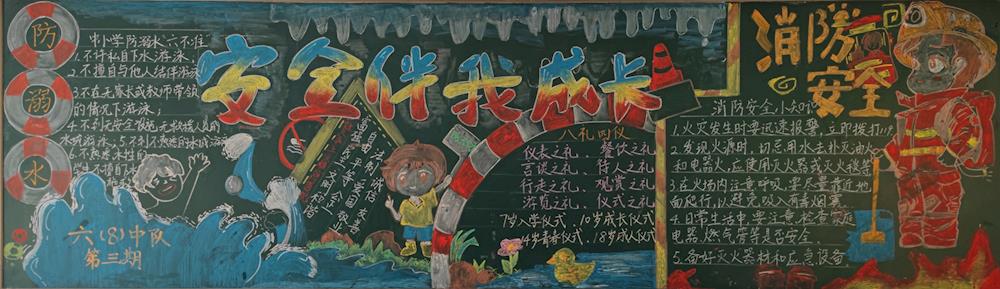 防
溺
水
中小学防溺水六不准
1.不许私自下水游泳,
2.不擅自与他人结伴游泳
3.不在无家长或教师带领
的情况下游泳;
4.不到无安全设施,无救援人员的
水域游泳;5.不到不熟悉的水域游泳
6.不熟悉水性的
学生不擅自下水
六(8)中队
第三期
安全伴我成长
富强 民主 文明 和谐
自由 平等 公正
法制 爱国 敬业
诚信 友善
八礼四仪
仪表之礼、餐饮之礼
言谈之礼、待人之礼
行走之礼、观赏之礼
游览之礼、仪式之礼
7岁入学仪式、10岁成长仪式
14岁青春仪式、18岁成人仪式
消防
安全
消防安全小知识
1.火灾发生时要迅速报警,立即拨打119
2.发现火源时,切忌用水去扑灭油火
和电器火,应使用灭火器或灭火毯等
3.在火场内注意呼吸,要尽量靠近地
面爬行,以避免吸入有毒烟雾.
4.日常生活中要注意检查家庭
电器、燃气管等是否安全.
5.备好灭火器材和应急设备.